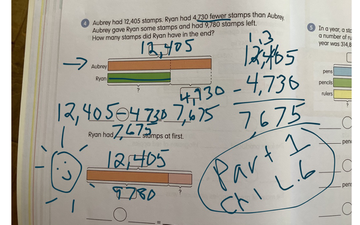 4 Aubrey had 12,405 stamps. Ryan had 4,730 fewer stamps than Aubrey.
Aubrey gave Ryan some stamps and had 9,780 stamps left.
How many stamps did Ryan have in the end?
12,405
Aubrey
Ryan
?
4,730
12,405 - 4730 7,675
Ryan had 7,675 stamps at first.
12,405
9780
?
=
1 3
12,405
- 4,730
7,675
Part 1
Ch 1 L.6
5 In a year, a sta
a number of ru
year was 314,8
pens
pencils
rulers
?
pen
pen